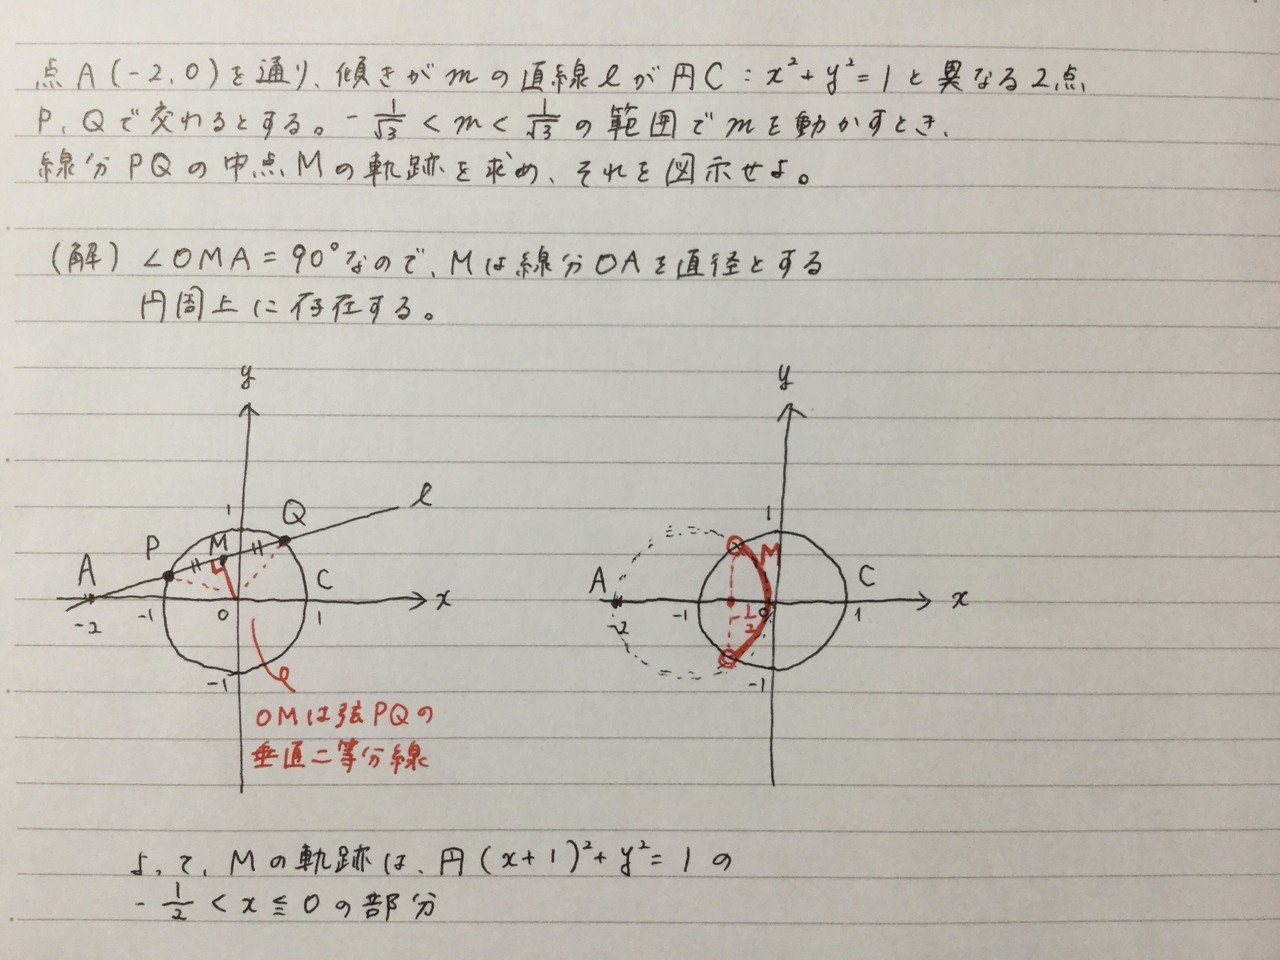 点A(-2,0)を通り、傾きがmの直線lが円C:x²+y²=1と異なる2点
P、Qで交わるとする。-1/√3<m<1/√3の範囲でmを動かすとき、
線分PQの中点Mの軌跡を求め、それを図示せよ。
(解)∠OMA=90°なので、Mは線分OAを直径とする
円周上に存在する。
y
l
1
Q
P
M
A
C
-2
-1
0
1
x
-1
OMは弦PQの
垂直二等分線
y
1
M
A
C
-2
-1
-1/2
0
1
x
-1
よって、Mの軌跡は、円(x+1)²+y²=1の
-1/2<x≦0の部分